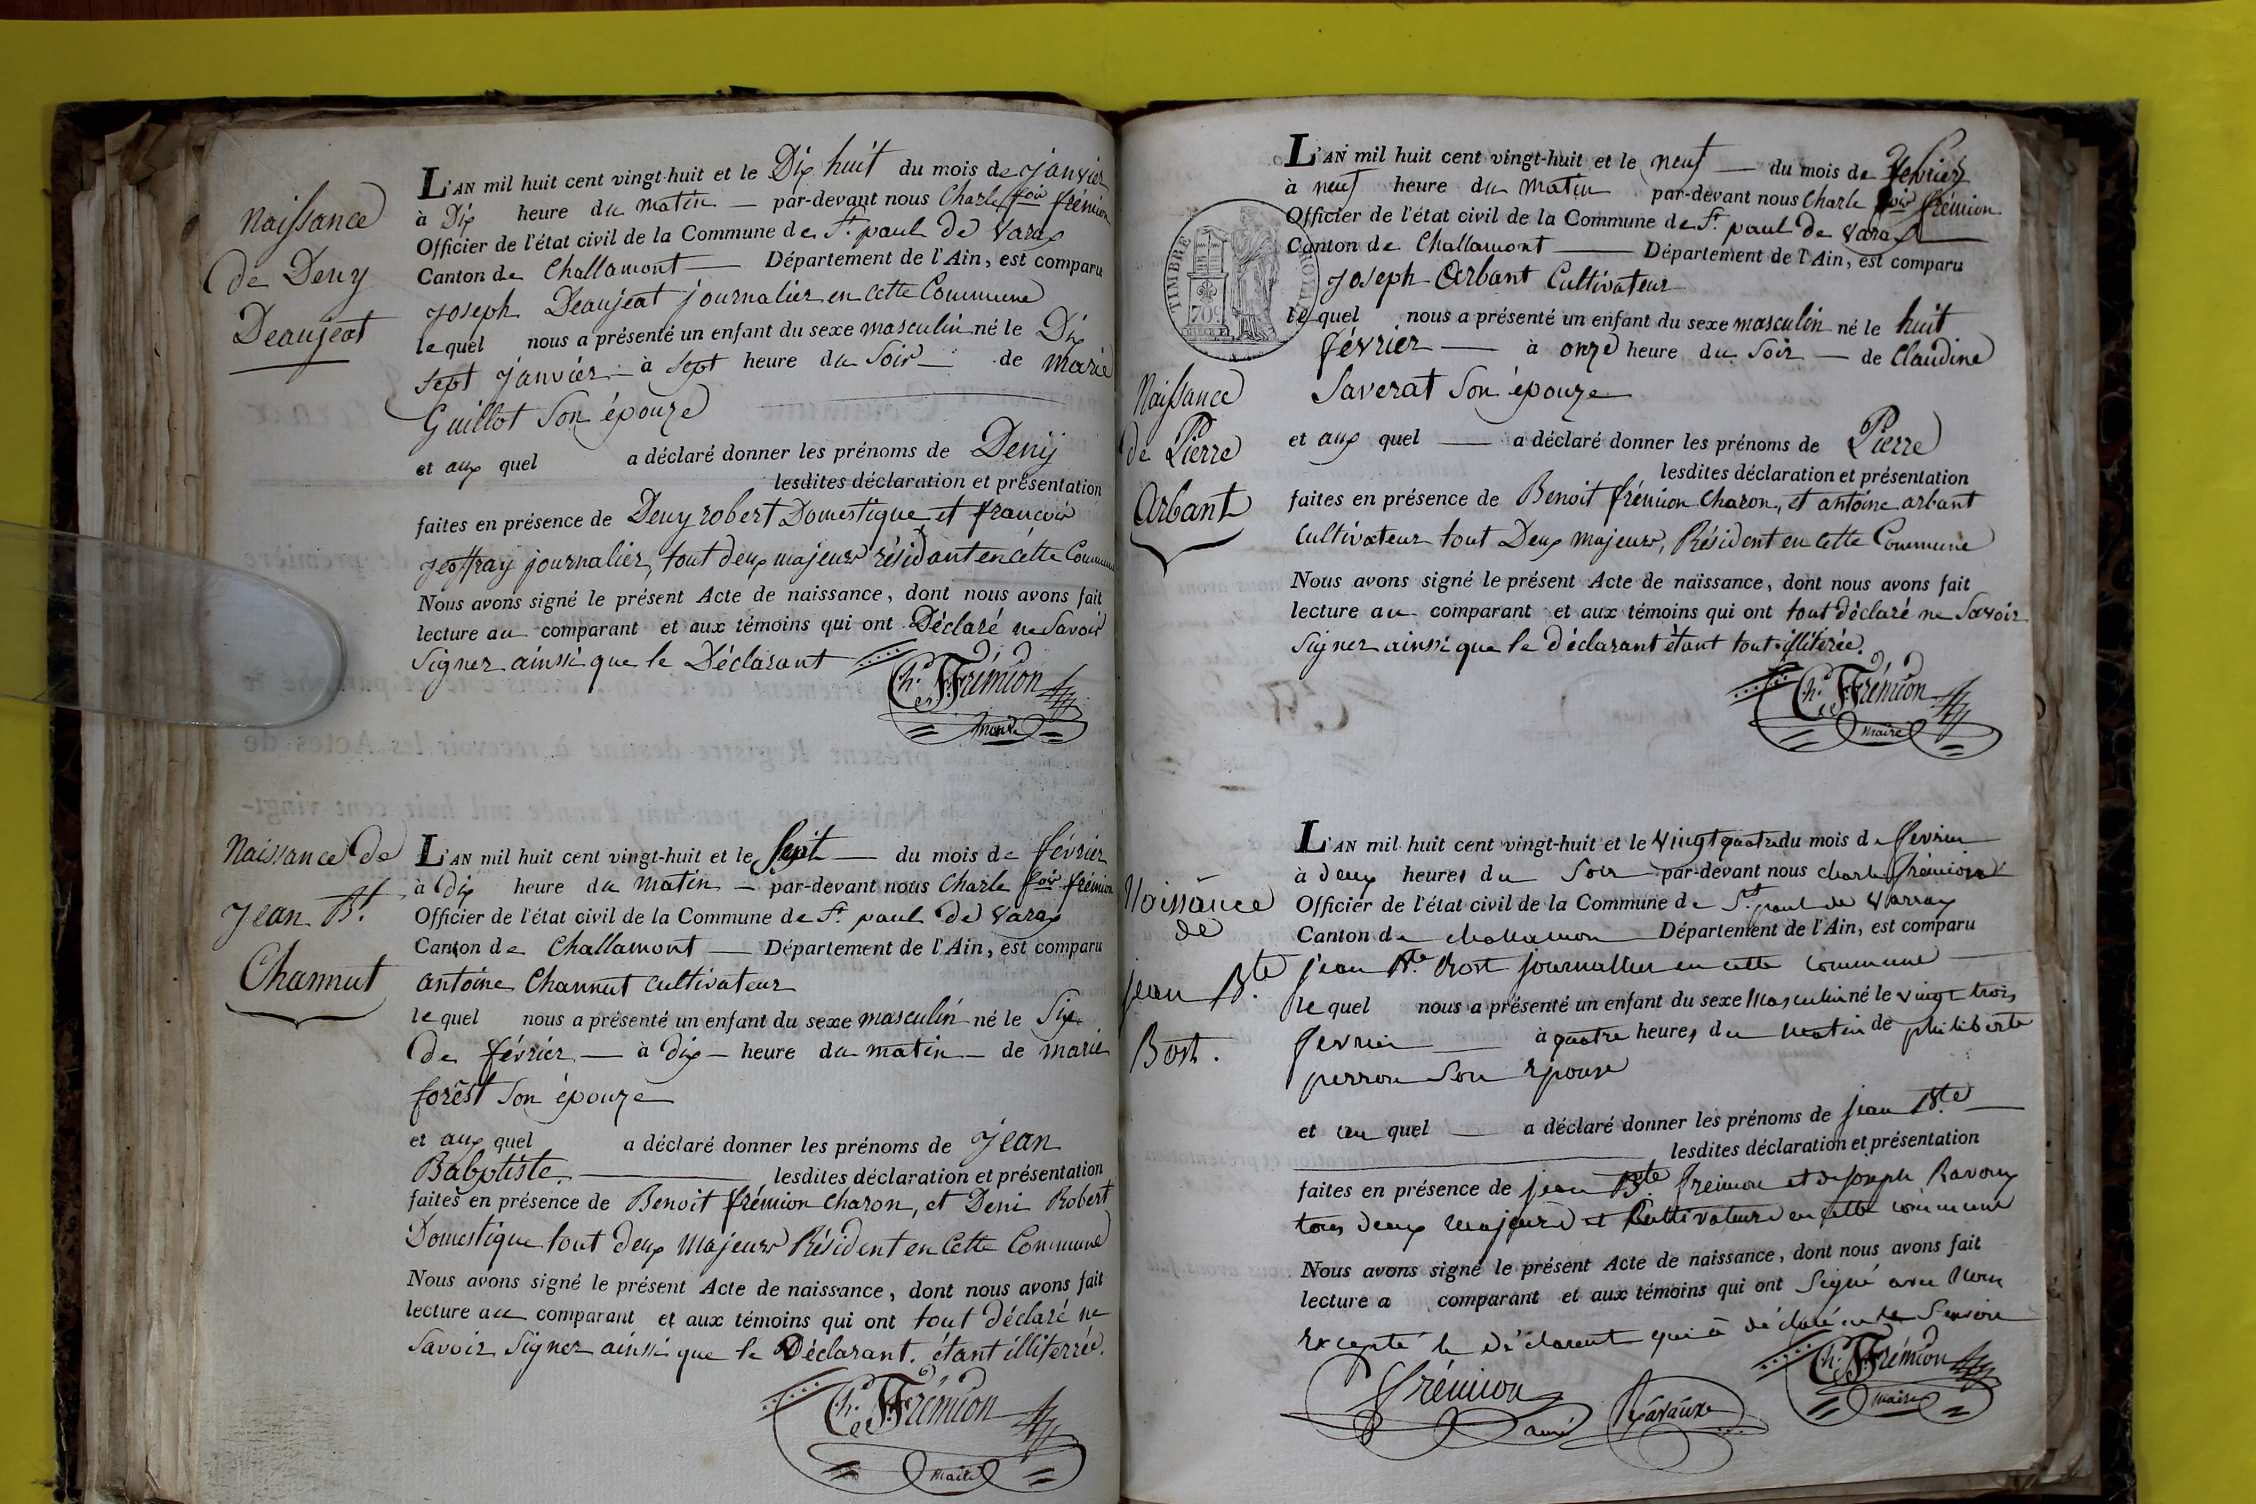 Naissance
de Deny
Deaujeat
L'AN mil huit cent vingt-huit et le Dix huit du mois de janvier
à Dix heure du matin — par-devant nous Charle fois frémion
Officier de l'état civil de la Commune de St. paul de Varax
Canton de Challamont — Département de l'Ain, est comparu
joseph Deaujeat journalier en cette Commune
le quel nous a présenté un enfant du sexe masculin né le Dix
sept janvier — à sept heure du Soir — de marie
Guillot Son épouze
et aux quel a déclaré donner les prénoms de Deny
lesdites déclaration et présentation
faites en présence de Deny robert Domestique et francois
jeoffray journalier, tout deux majeur résidant en cette Commune
Nous avons signé le présent Acte de naissance, dont nous avons fait
lecture au comparant et aux témoins qui ont Déclaré ne Savoir
Signer ainsi que le Déclarant
Ch. Frémion
maire
Naissance de
Jean Bt.
Channut
L'AN mil huit cent vingt-huit et le Sept — du mois de février
à dix heure du matin — par-devant nous Charle fois frémion
Officier de l'état civil de la Commune de St. paul de Varax
Canton de Challamont — Département de l'Ain, est comparu
antoine Channut cultivateur
le quel nous a présenté un enfant du sexe masculin né le Six
de février — à dix — heure du matin — de marie
forêst Son épouze
et aux quel a déclaré donner les prénoms de Jean
Babptiste. — lesdites déclaration et présentation
faites en présence de Benoit frémion charon, et Deni Robert
Domestique tout deux Majeur Résident en Cette Commune
Nous avons signé le présent Acte de naissance, dont nous avons fait
lecture au comparant et aux témoins qui ont tout déclaré ne
Savoir Signer ainsi que le Déclarant. étant illiterrée.
Ch. Frémion
maire
TIMBRE ROYAL
70c
L'AN mil huit cent vingt-huit et le neuf — du mois de février
à neuf heure du matin par-devant nous Charle fois frémion
Officier de l'état civil de la Commune de St. paul de Varax
Canton de Challamont — Département de l'Ain, est comparu
joseph Arbant Cultivateur
le quel nous a présenté un enfant du sexe masculin né le huit
février — à onze heure du Soir — de Claudine
Saverat Son épouze
Naissance
de Pierre
Arbant
et aux quel — a déclaré donner les prénoms de Pierre
lesdites déclaration et présentation
faites en présence de Benoit frémion Charon, et antoine arbant
Cultivateur tout Deux majeur, Résident en Cette Commune
Nous avons signé le présent Acte de naissance, dont nous avons fait
lecture au comparant et aux témoins qui ont tout déclaré ne Savoir
Signer ainsi que le déclarant étant tout illiterée.
Ch. Frémion
maire
Naissance
de
jean Bte.
Bost.
L'AN mil huit cent vingt-huit et le vingt quatre du mois de fevrier
à deux heures du Soir par-devant nous charle frémion
Officier de l'état civil de la Commune de St. paul de Varrax
Canton de challamon Département de l'Ain, est comparu
jean Bte. Bost journallier en cette commune —
le quel nous a présenté un enfant du sexe Masculin né le vingt trois
fevrier — à quatre heures du Matin de philiberte
perron Son Epouse
et au quel — a déclaré donner les prénoms de jean Bte. —
lesdites déclaration et présentation
faites en présence de jean Bte. fremion et de joseph Ravoux
tous deux majeurs et Cultivateurs en cette commune
Nous avons signé le présent Acte de naissance, dont nous avons fait
lecture a comparant et aux témoins qui ont Signé avec Nous
Excepté le déclarent qui a déclaré ne le Savoir
frémion
ainé
Ravaux
Ch. Frémion
maire